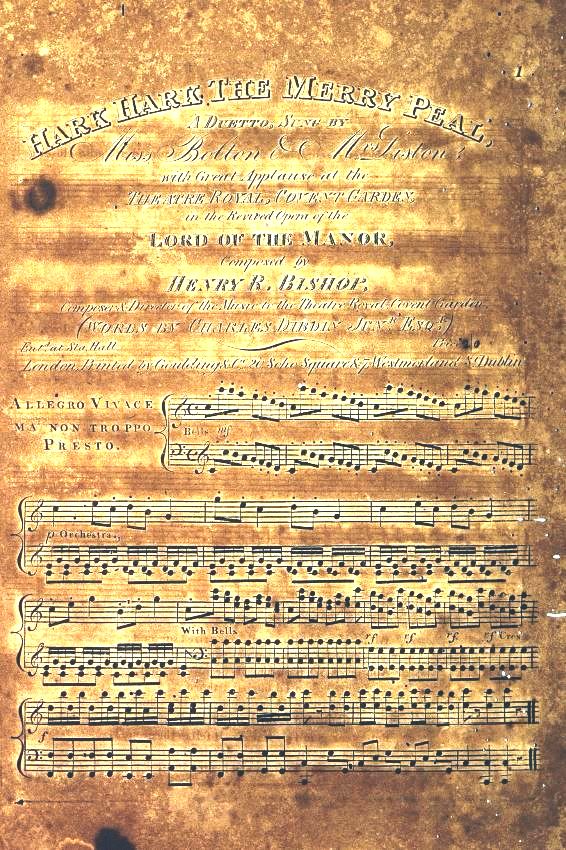 1
HARK HARK, THE MERRY PEAL,
A DUETTO, SUNG BY
Miss Bolton & Mrs. Liston,
with Great Applause at the
THEATRE ROYAL, COVENT GARDEN,
in the Revived Opera of the
LORD OF THE MANOR,
Composed by
HENRY R. BISHOP,
Composer & Director of the Music to the Theatre Royal Covent Garden
(WORDS BY CHARLES DIBDIN JUNR. ESQR.)
Entd. at Sta. Hall
London, Printed by Goulding & Co. 20 Soho Square & 7 Westmorland St. Dublin
ALLEGRO VIVACE
MA NON TROPPO
PRESTO.
Bells ff
p Orchestra.
With Bells
sf sf sf sf Cres
f